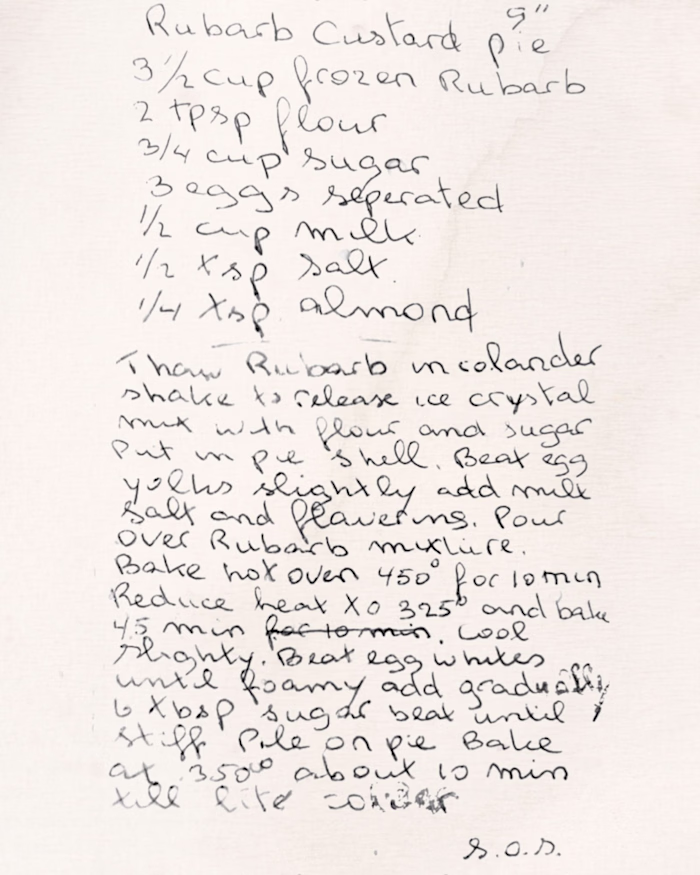 9"
Rubarb Custard pie
3 1/2 cup frozen Rubarb
2 tpsp flour
3/4 cup sugar
3 eggs seperated
1/2 cup milk
1/2 tsp salt
1/4 tsp almond
Thaw Rubarb in colander
shake to release ice crystal
mix with flour and sugar
Put in pie shell. Beat egg
yolks slightly add milk
salt and flavering. Pour
over Rubarb mixture.
Bake hot oven 450° for 10 min
Reduce heat to 325° and bake
45 min for 10 min. Cool
slighty. Beat egg whites
until foamy add gradually
6 tbsp sugar beat until
stiff Pile on pie Bake
at 350° about 10 min
till lite
s.o.s.